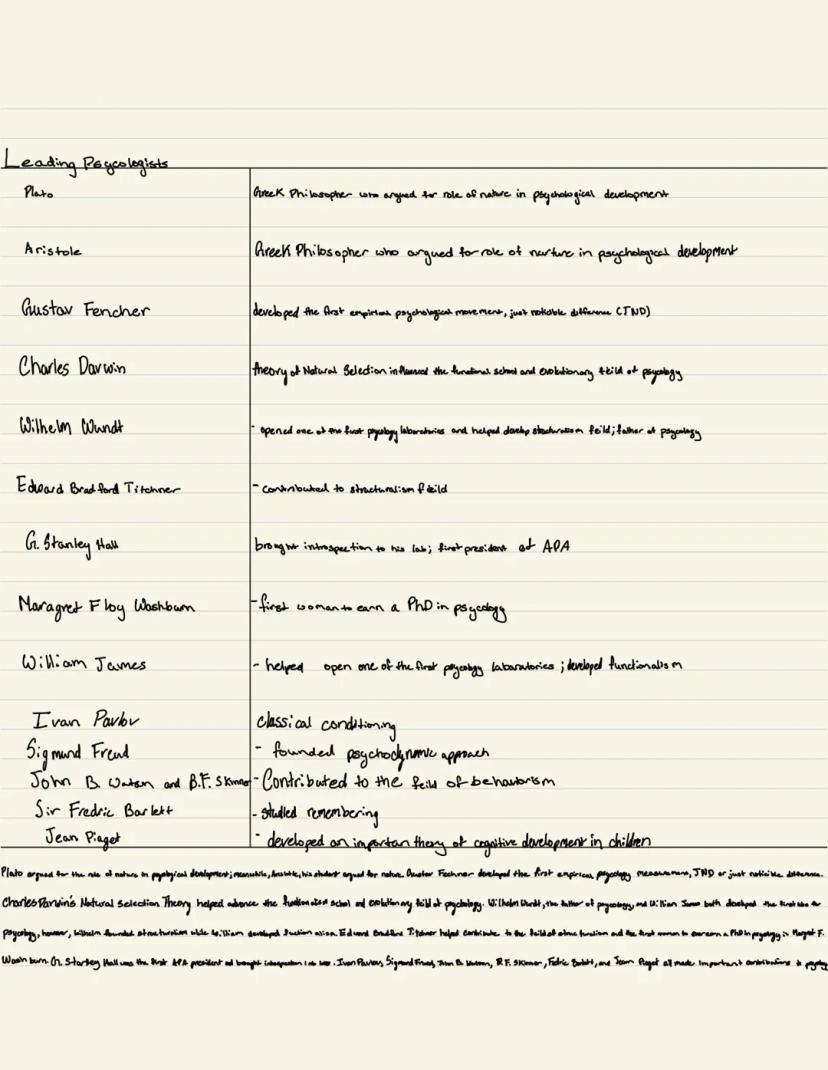 Leading Psycologists
Plato Greek Philosopher who argued for role of nature in psychological development
Aristole Greek Philosopher who argued for role of nurture in psychological development
Gustav Fencher developed the first empirical psychological movement, just noticible difference (JND)
Charles Darwin theory of Natural Selection influenced the functional school and evolutionary feild of psycology
Wilhelm Wundt - opened one of the first psycology laboratories and helped develop structuralism feild; father of psycology
Edward Bradford Titchner - contributed to structuralism feild
G. Stanley Hall brought introspection to his lab; first president of APA
Maragret Floy Washburn - first woman to earn a PhD in psycology
William James - helped open one of the first psycology laboratories; developed functionalism
Ivan Pavlov classical conditioning
Sigmund Freud - founded psychodynamic approach
John B. Watson and B.F. Skinner - Contributed to the feild of behaviorism
Sir Fredric Barlett - studied remembering
Jean Piaget - developed an importan theory of cognitive development in children
Plato argued for the role of nature in development; meanwhile, Aristotle, his student argued for nature. Gustav Fechner developed the first empirical psycology measurement, JND or just noticible difference.
Charles Darwin's Natural Selection Theory helped advance the school and evolutionary feild of psychology. Wilhelm Wundt, the father of psycology, and William James both developed the first labs for
psycology, however, Wilhelm founded structuralism while William developed Edward Bradford Titchner helped contribute to the feild of structuralism and the first woman to earn a PhD in psycology is Margret F.
Washburn. G. Stanley Hall was the first APA president and brought introspection into Ivan Pavlov, Sigmund Freud, John B. Watson, B.F. Skinner, Fedric Barlett, and Jean Piaget all made important contributions to